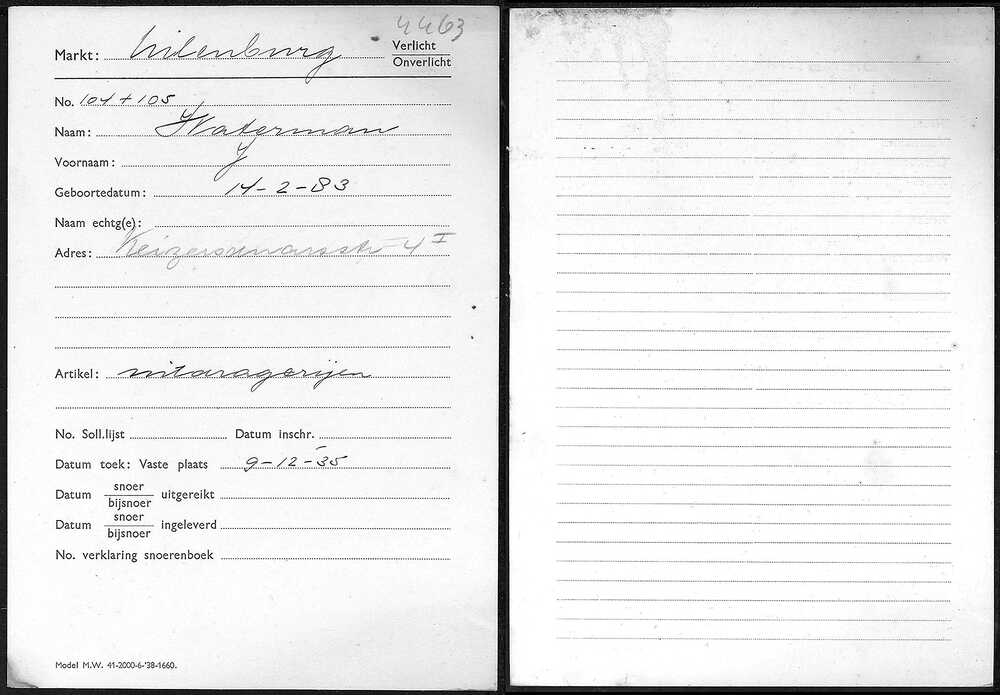 4463
Markt: Uilenburg
Verlicht
Onverlicht
No. 104 + 105
Naam: Waterman
Voornaam: J
Geboortedatum: 14-2-83
Naam echtg(e):
Adres: Keizersdwarsstr 4 I
Artikel:
No. Soll.lijst Datum inschr.
Datum toek: Vaste plaats 9-12-35
Datum snoer/bijsnoer uitgereikt
Datum snoer/bijsnoer ingeleverd
No. verklaring snoerenboek
Model M.W. 41-2000-6-'38-1660.